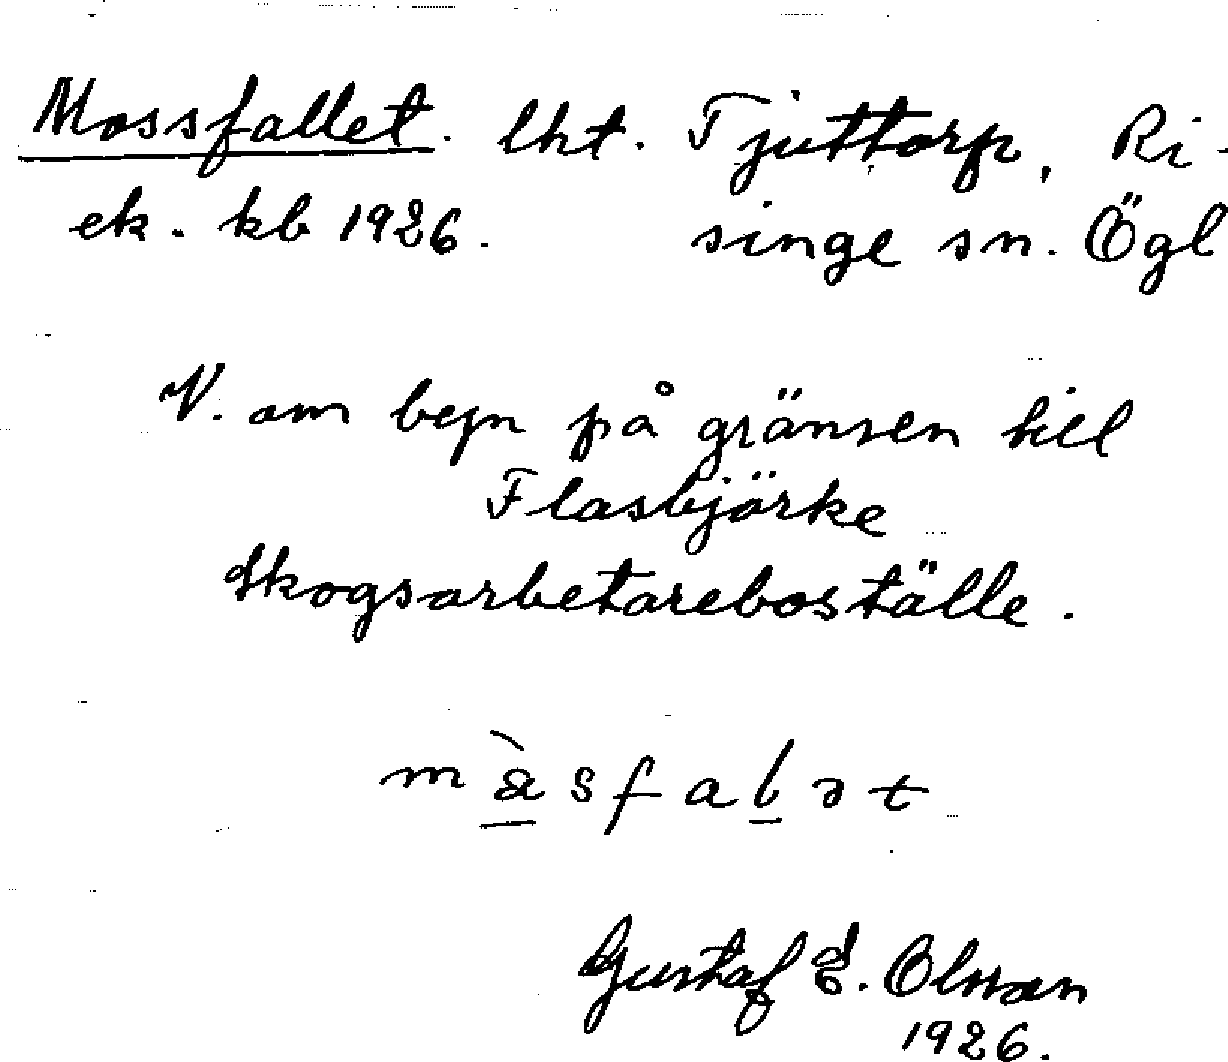 Mossfallet. lht. Tjuttorp, Ri-
ek. kb 1926. singe sn. Ögl
V. om byn på gränsen till
Flasbjörke
Skogsarbetareboställe.
m å̀ s f a l ə t
Gustaf E. Olsson
1926.